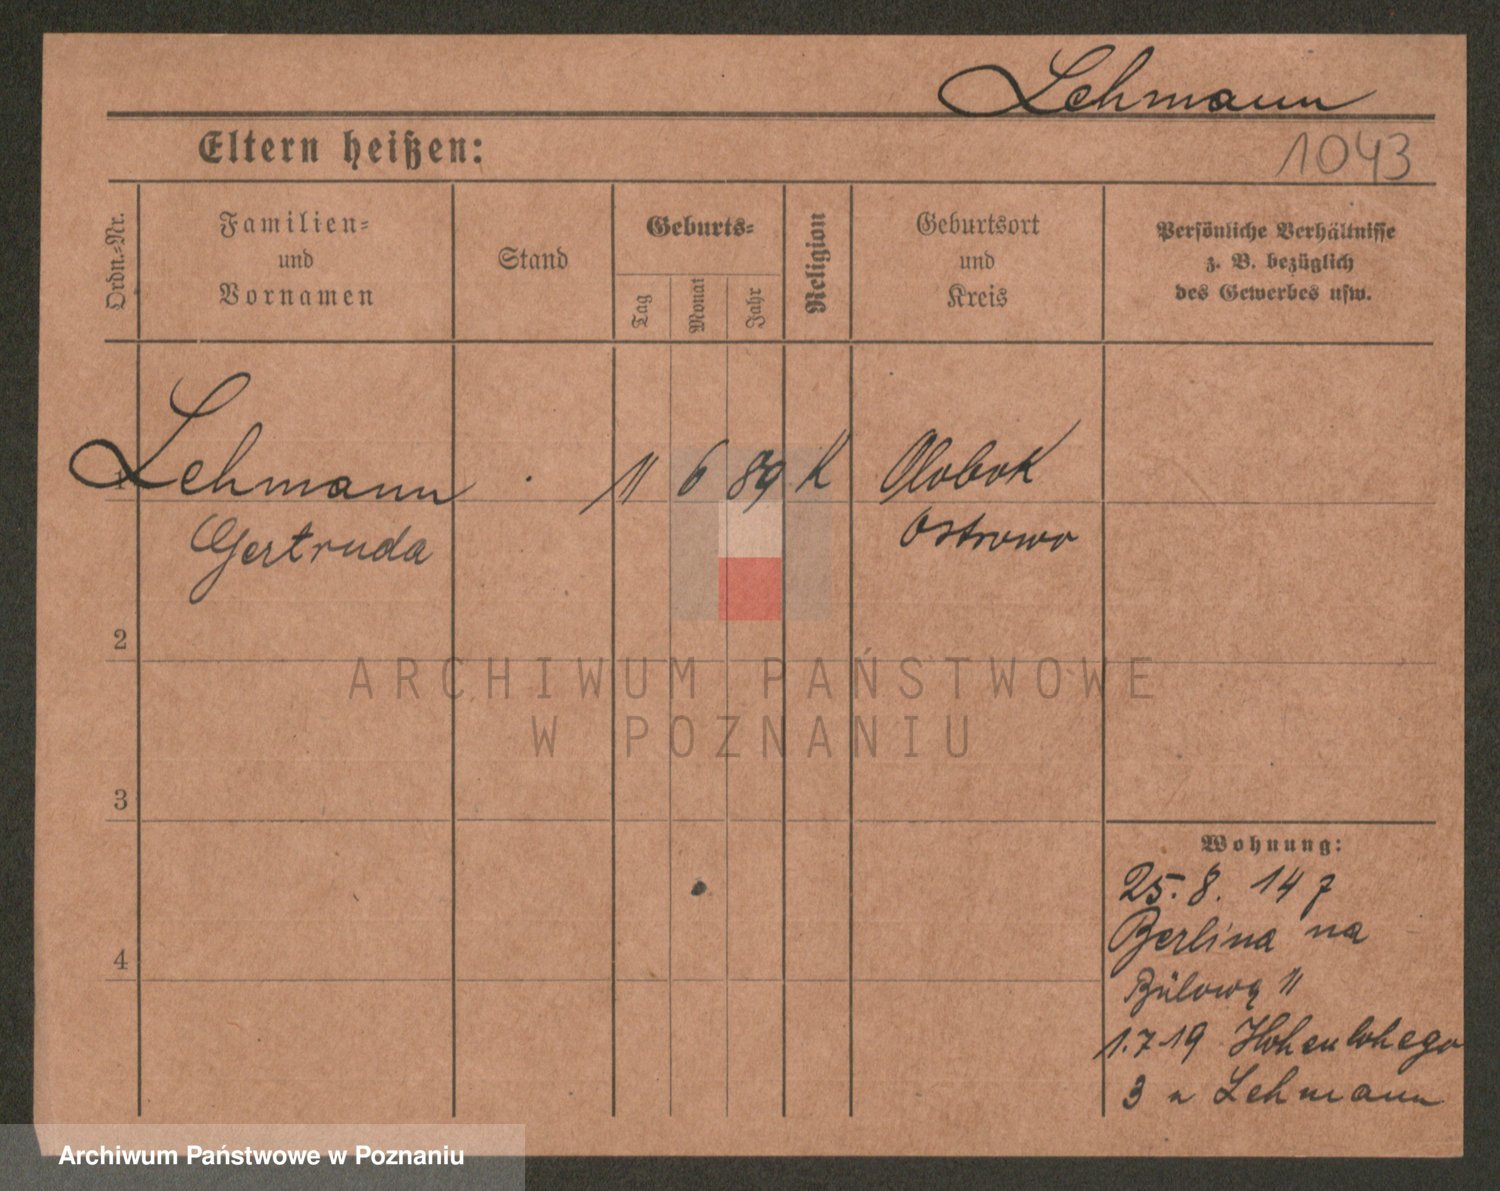 Lehmann
Eltern heißen:
1043
Ordn.-Nr.
Familien-
und
Vornamen
Stand
Geburts-
Tag
Monat
Jahr
Religion
Geburtsort
und
Kreis
Persönliche Verhältnisse
z. B. bezüglich
des Gewerbes usw.
1 Lehmann 11 6 89 K Olobok
Gertruda Ostrowo
2
ARCHIWUM PAŃSTWOWE
W POZNANIU
3
Wohnung:
25. 8. 14 z
Berlina na
Bülową 11
4
1.7 19 Hohenlohego
3 u Lehmann
Archiwum Państwowe w Poznaniu